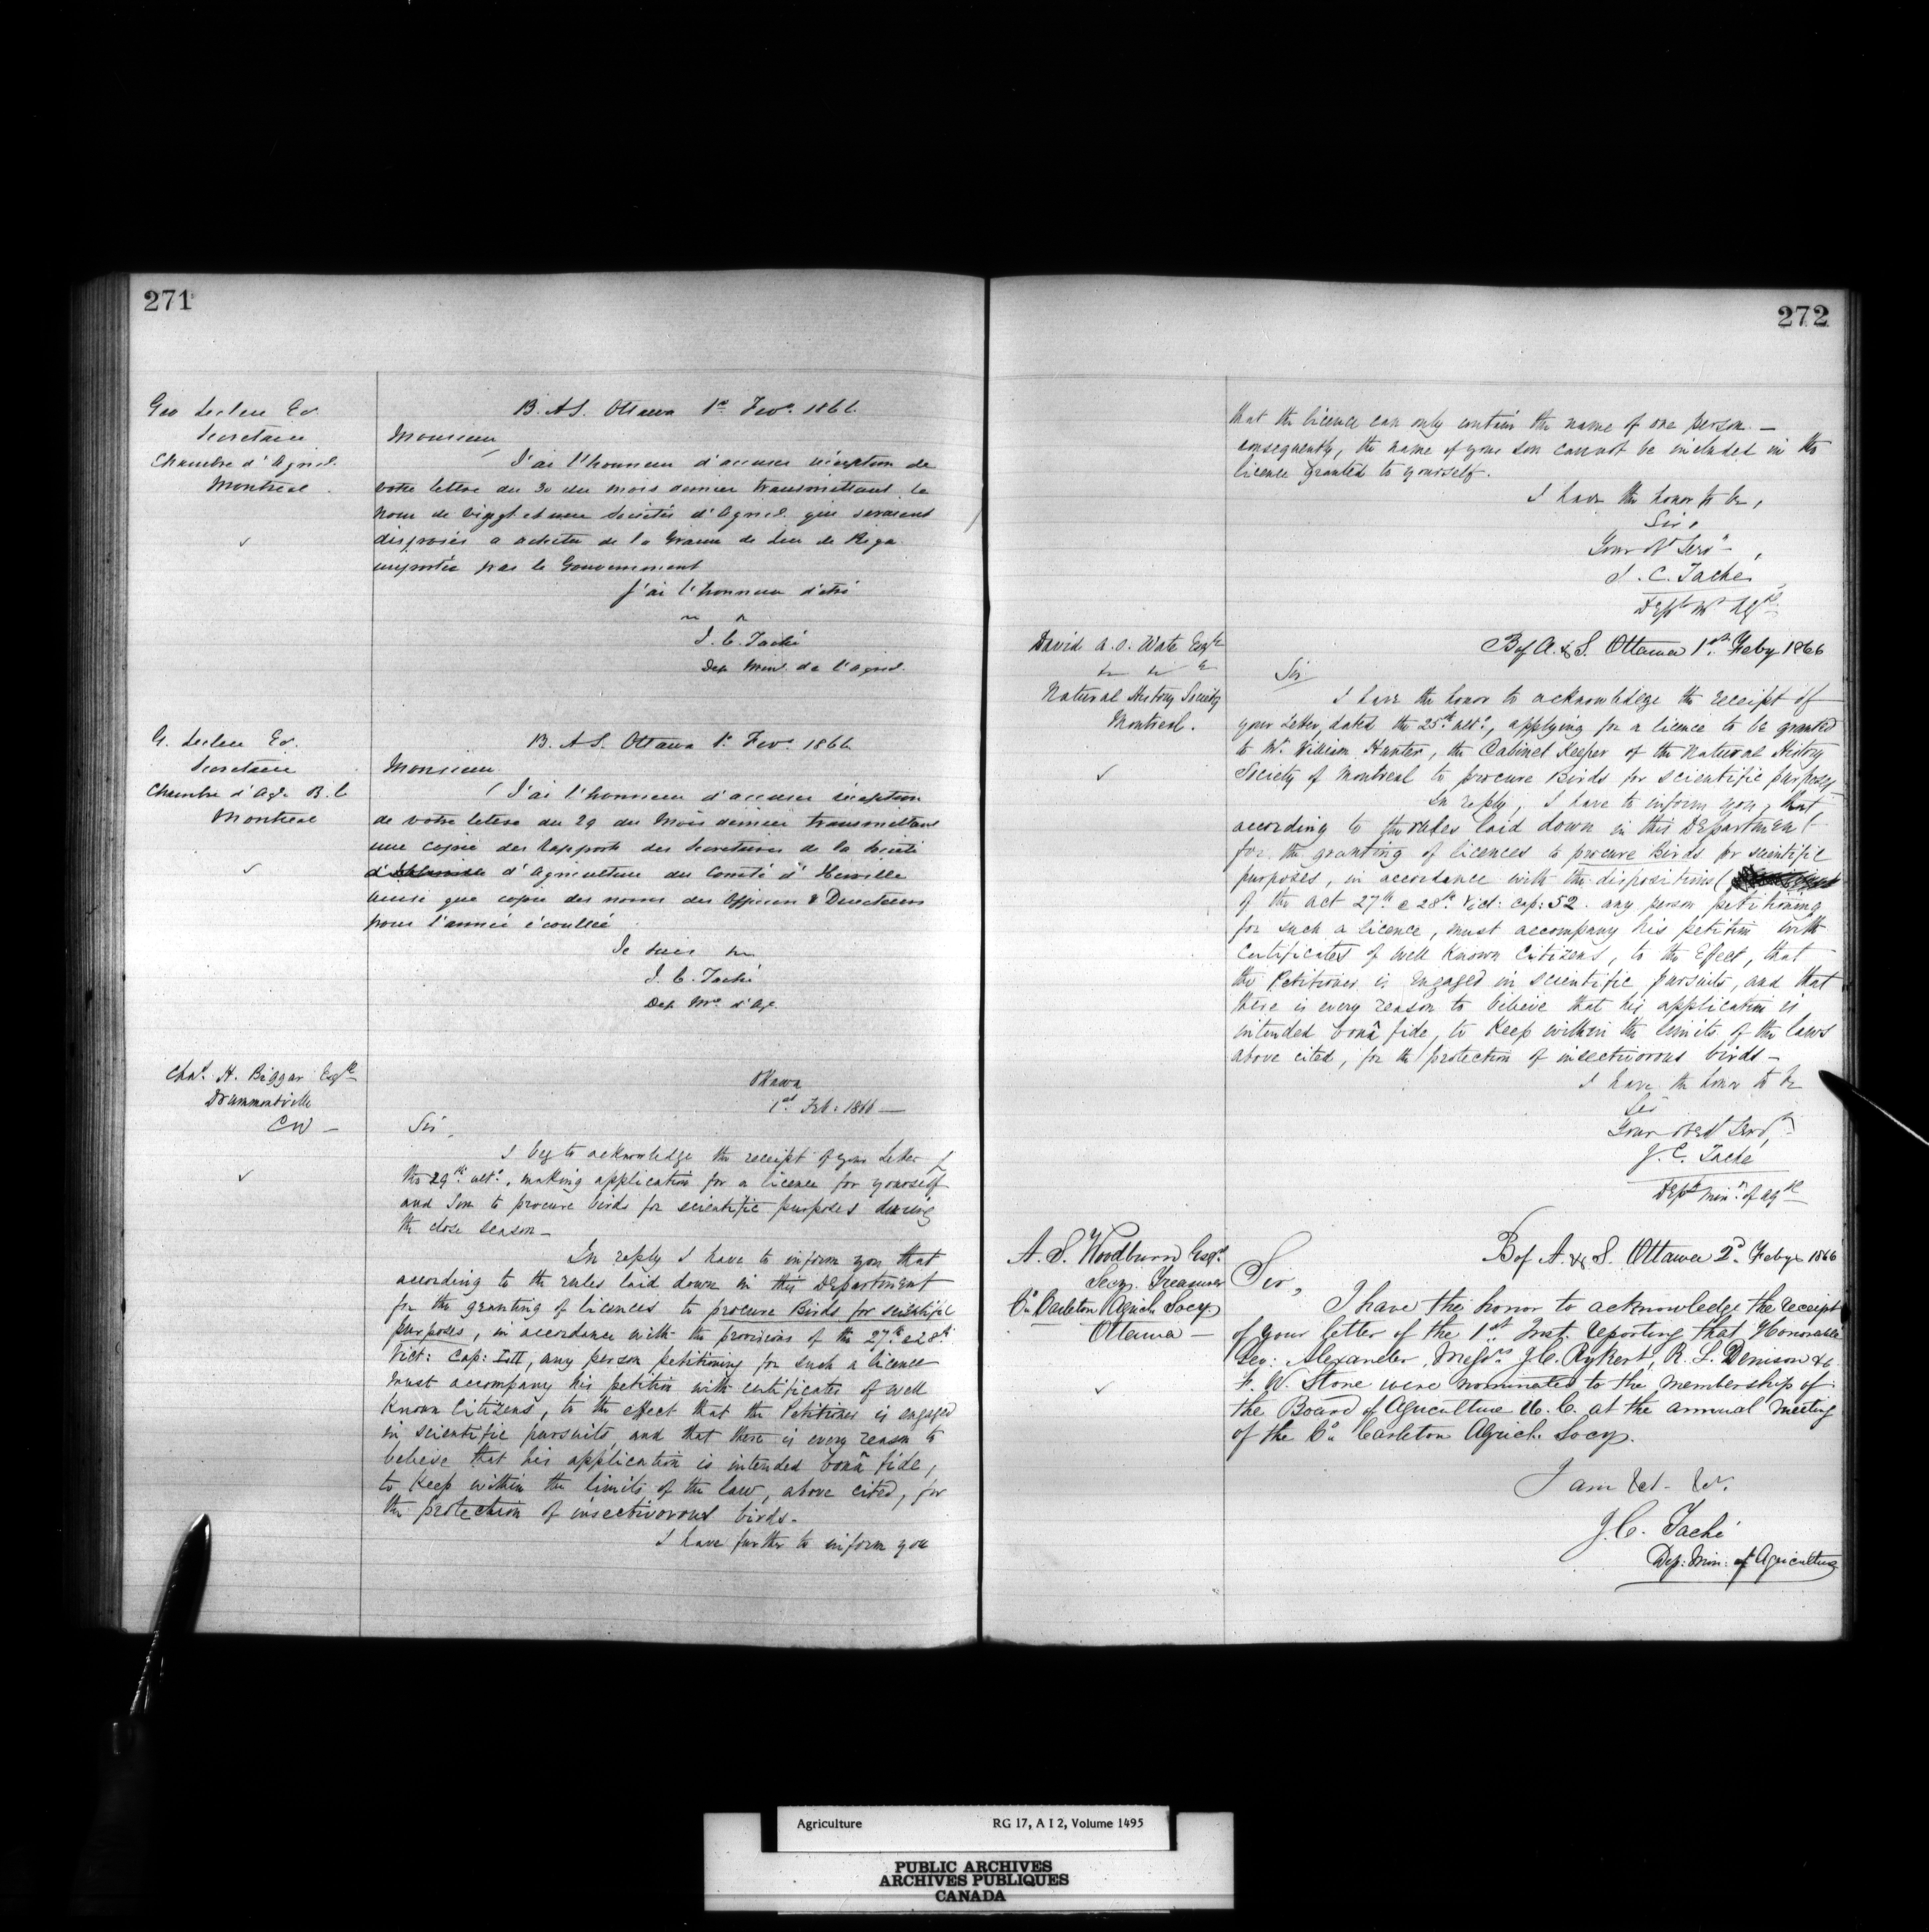 271
Geo Leclere Er.
Secretaire
Chambre d'Agricl.
Montreal
B. A S. Ottawa 1er Fevr. 1866.
Monsieur
J'ai l'honneur d'accuser réception de
votre lettre du 30 du mois dernier transmettant le
nom de vingt et une Sociétés d'Agricl. qui seraient
disposées a acheter de la Graine de Lin de Riga
importée par le Gouvernement
J'ai l'honneur d'etre
J. C. Taché
Dep Minl. de l'Agricl.
G. Leclere Er.
Secretaire
Chambre d'Agr. B. C
Montreal
B. A S. Ottawa 1r Fevr. 1866
Monsieur
J'ai l'honneur d'accuser réception
de votre lettre du 29 du Mois dernier transmettant
une copie des rapports des Secretaires de la Société
d'Agriculture du Comté d'Iberville
ainsi que copie des noms des Officiers & Directeurs
pour l'année écoullée
Je suis
J. C. Taché
Dep Mre d'Ag.
Chas. H. Biggar Esqre
Drummondville
CW -
Ottawa
1st Feb. 1866 —
Sir,
I beg to acknowledge the receipt of your Letter of
the 29th. ulto., making application for a licence for yourself
and Son to procure birds for scientific purposes during
the close season -
In reply I have to inform you that
according to the rules laid down in this Department
for the granting of licences to procure Birds for scientific
purposes, in accordance with the provisions of the 27th & 28th
Vict: Cap: LII, any person petitioning for such a licence
must accompany his petition with certificates of well
Known Citizens, to the effect that the Petitioner is engaged
in scientific pursuits, and that there is every reason to
believe that his application is intended bonâ fide,
to Keep within the limits of the law, above cited, for
the protection of insectivorous birds -
I have further to inform you
272
that the licence can only contain the name of one person. —
consequently, the name of your son cannot be included in the
licence granted to yourself.
I have the honor to be,
Sir,
Your Ob Servt,
J. C. Taché
Depy Mr Agre
David A. S. Wate Esqre
Natural History Society
Montreal.
B of A. & S. Ottawa 1st. Feby 1866
Sir
I have the honor to acknowledge the receipt of
your Letter, dated the 25th ulto., applying for a licence to be granted
to Mr. William Hunter, the Cabinet Keeper of the Natural History
Society of Montreal to procure Birds for scientific purposes
In reply, I have to inform you, that
according to the rules laid down in this Department
for the granting of licences to procure Birds for scientific
purposes, in accordance with the dispositions
of the act 27th & 28th. Vict: Cap: 52. any person petitioning
for such a licence, must accompany his petition with
Certificates of well Known Citizens, to the Effect, that
the Petitioner is engaged in scientific pursuits, and that
there is every reason to believe that his application is
intended bonâ fide, to Keep within the limits of the laws
above cited, for the protection of insectivorous birds -
I have the honor to be
Sir
Your Obedt Servt,
J. C. Taché
Depy Minr. of Agre
A. S. Woodburn Esqr.
Secy. Treasurer
Co. Carleton Agricl. Socy.
Ottawa —
B of A. & S. Ottawa 2d Feby 1866
Sir,
I have the honor to acknowledge the receipt
of your letter of the 1st Inst. reporting that Honorable
Geo: Alexander, Messrs. J. C. Rykert, R. L. Denison &
F. W. Stone were nominated to the membership of
the Board of Agriculture U. C. at the annual Meeting
of the Co. Carleton Agricl. Socy.
I am &c. &c.
J. C. Taché
Dep: Min: of Agriculture
Agriculture RG 17, A I 2, Volume 1495
PUBLIC ARCHIVES
ARCHIVES PUBLIQUES
CANADA